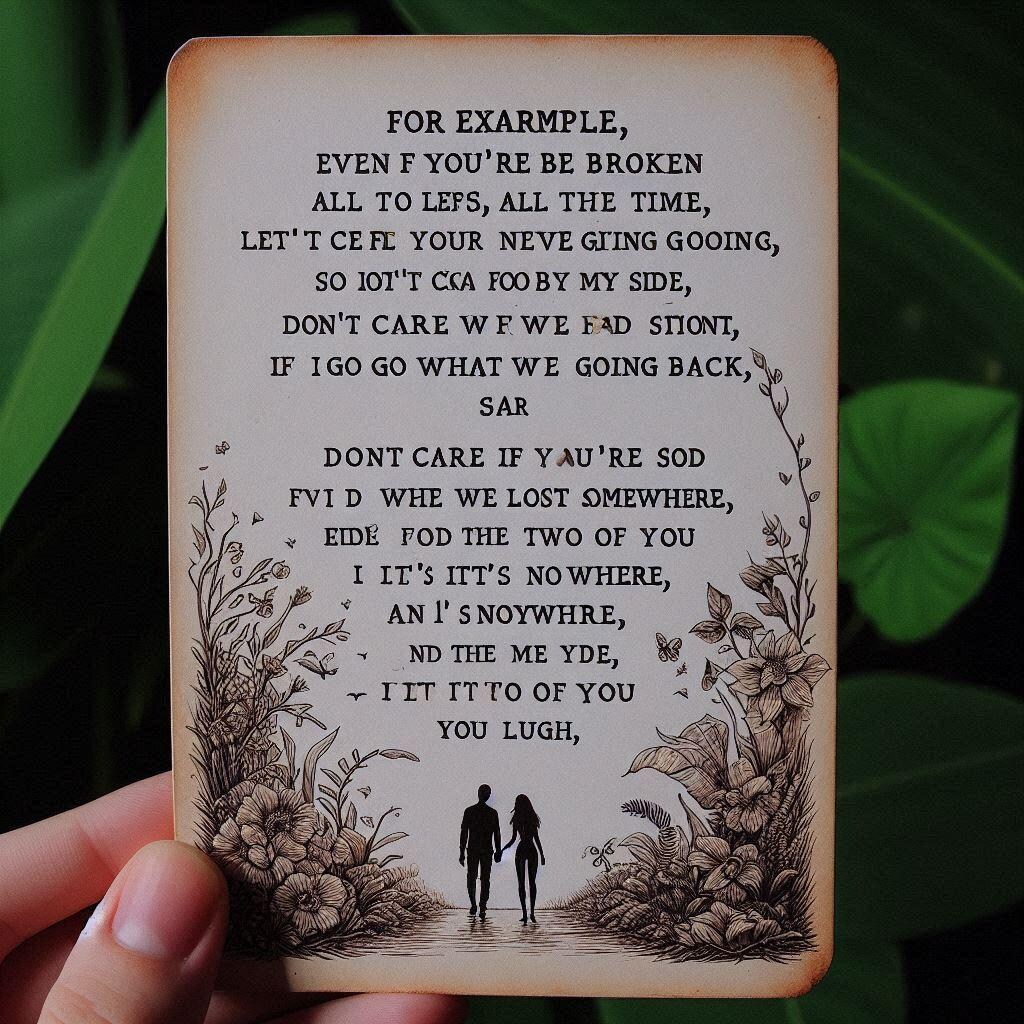 FOR EXARMPLE,
EVEN F YOU'RE BE BROKEN
ALL TO LEPS, ALL THE TIME,
LET'T YOUR NEVE GOOING,
SO BY MY SIDE,
DON'T CARE WE
IF I GO GO WHAT WE GOING BACK,
SAR
DONT CARE IF YAU'RE SOD
WHE WE LOST SOMEWHERE,
FOD THE TWO OF YOU
I IT'S ITT'S NOWHERE,
AN I'S NOYWHRE,
ND THE ME YDE,
OF YOU
YOU LUGH,